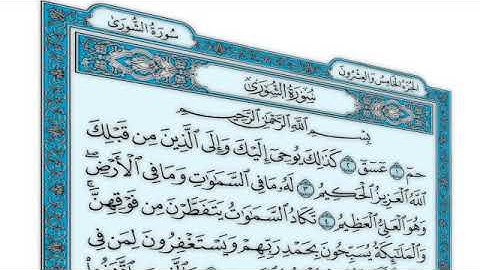 سُورَةُ الشُّورَىٰ
الجُزْءُ الخَامِسُ وَالعِشْرُونَ
سُورَةُ الشُّورَىٰ
بِسْمِ اللَّهِ الرَّحْمَٰنِ الرَّحِيمِ
حمٓ ۝١ عٓسٓقٓ ۝٢ كَذَٰلِكَ يُوحِىٓ إِلَيْكَ وَإِلَى ٱلَّذِينَ مِن قَبْلِكَ
ٱللَّهُ ٱلْعَزِيزُ ٱلْحَكِيمُ ۝٣ لَهُۥ مَا فِى ٱلسَّمَٰوَٰتِ وَمَا فِى ٱلْأَرْضِ ۖ
وَهُوَ ٱلْعَلِىُّ ٱلْعَظِيمُ ۝٤ تَكَادُ ٱلسَّمَٰوَٰتُ يَتَفَطَّرْنَ مِن فَوْقِهِنَّ ۚ
وَٱلْمَلَٰٓئِكَةُ يُسَبِّحُونَ بِحَمْدِ رَبِّهِمْ وَيَسْتَغْفِرُونَ لِمَن فِى